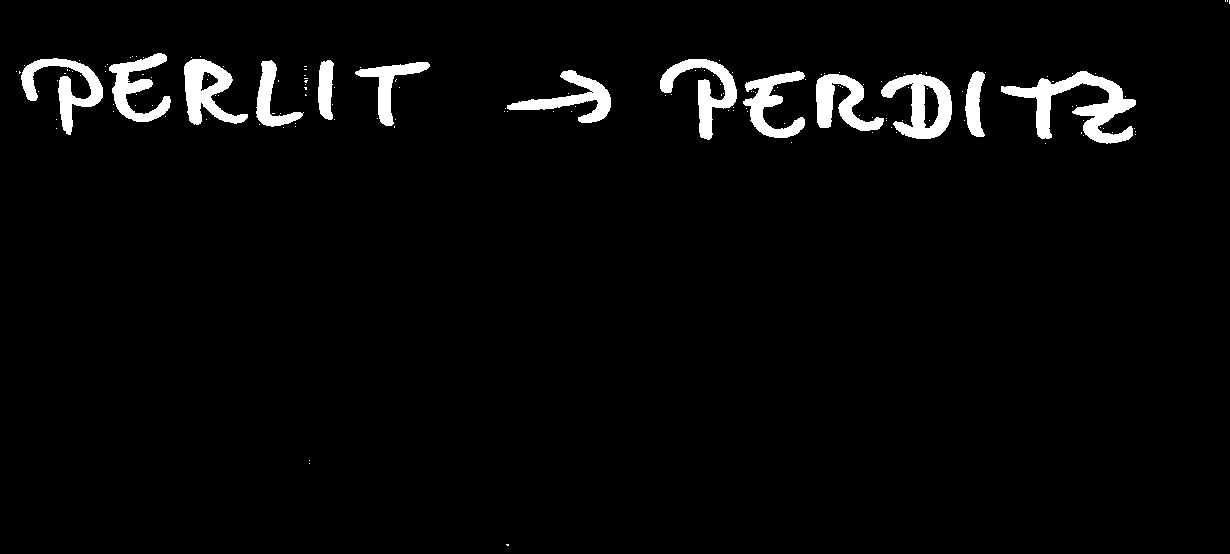 PERLIT → PERDITZ